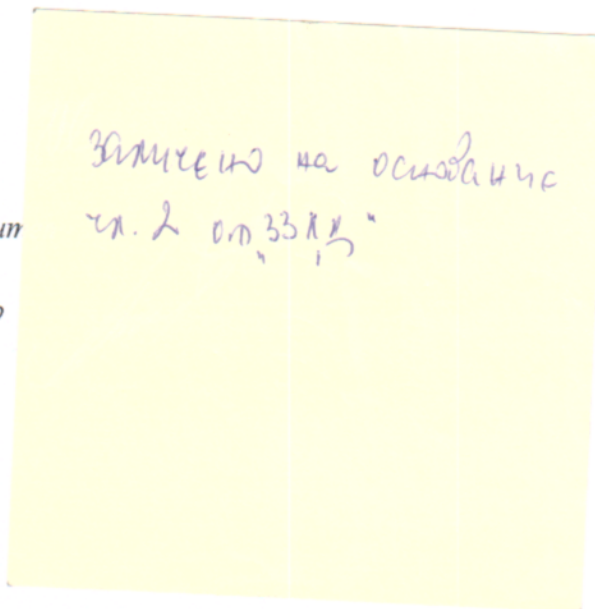 заличено на основание
чл. 2 от „ЗЗЛД"